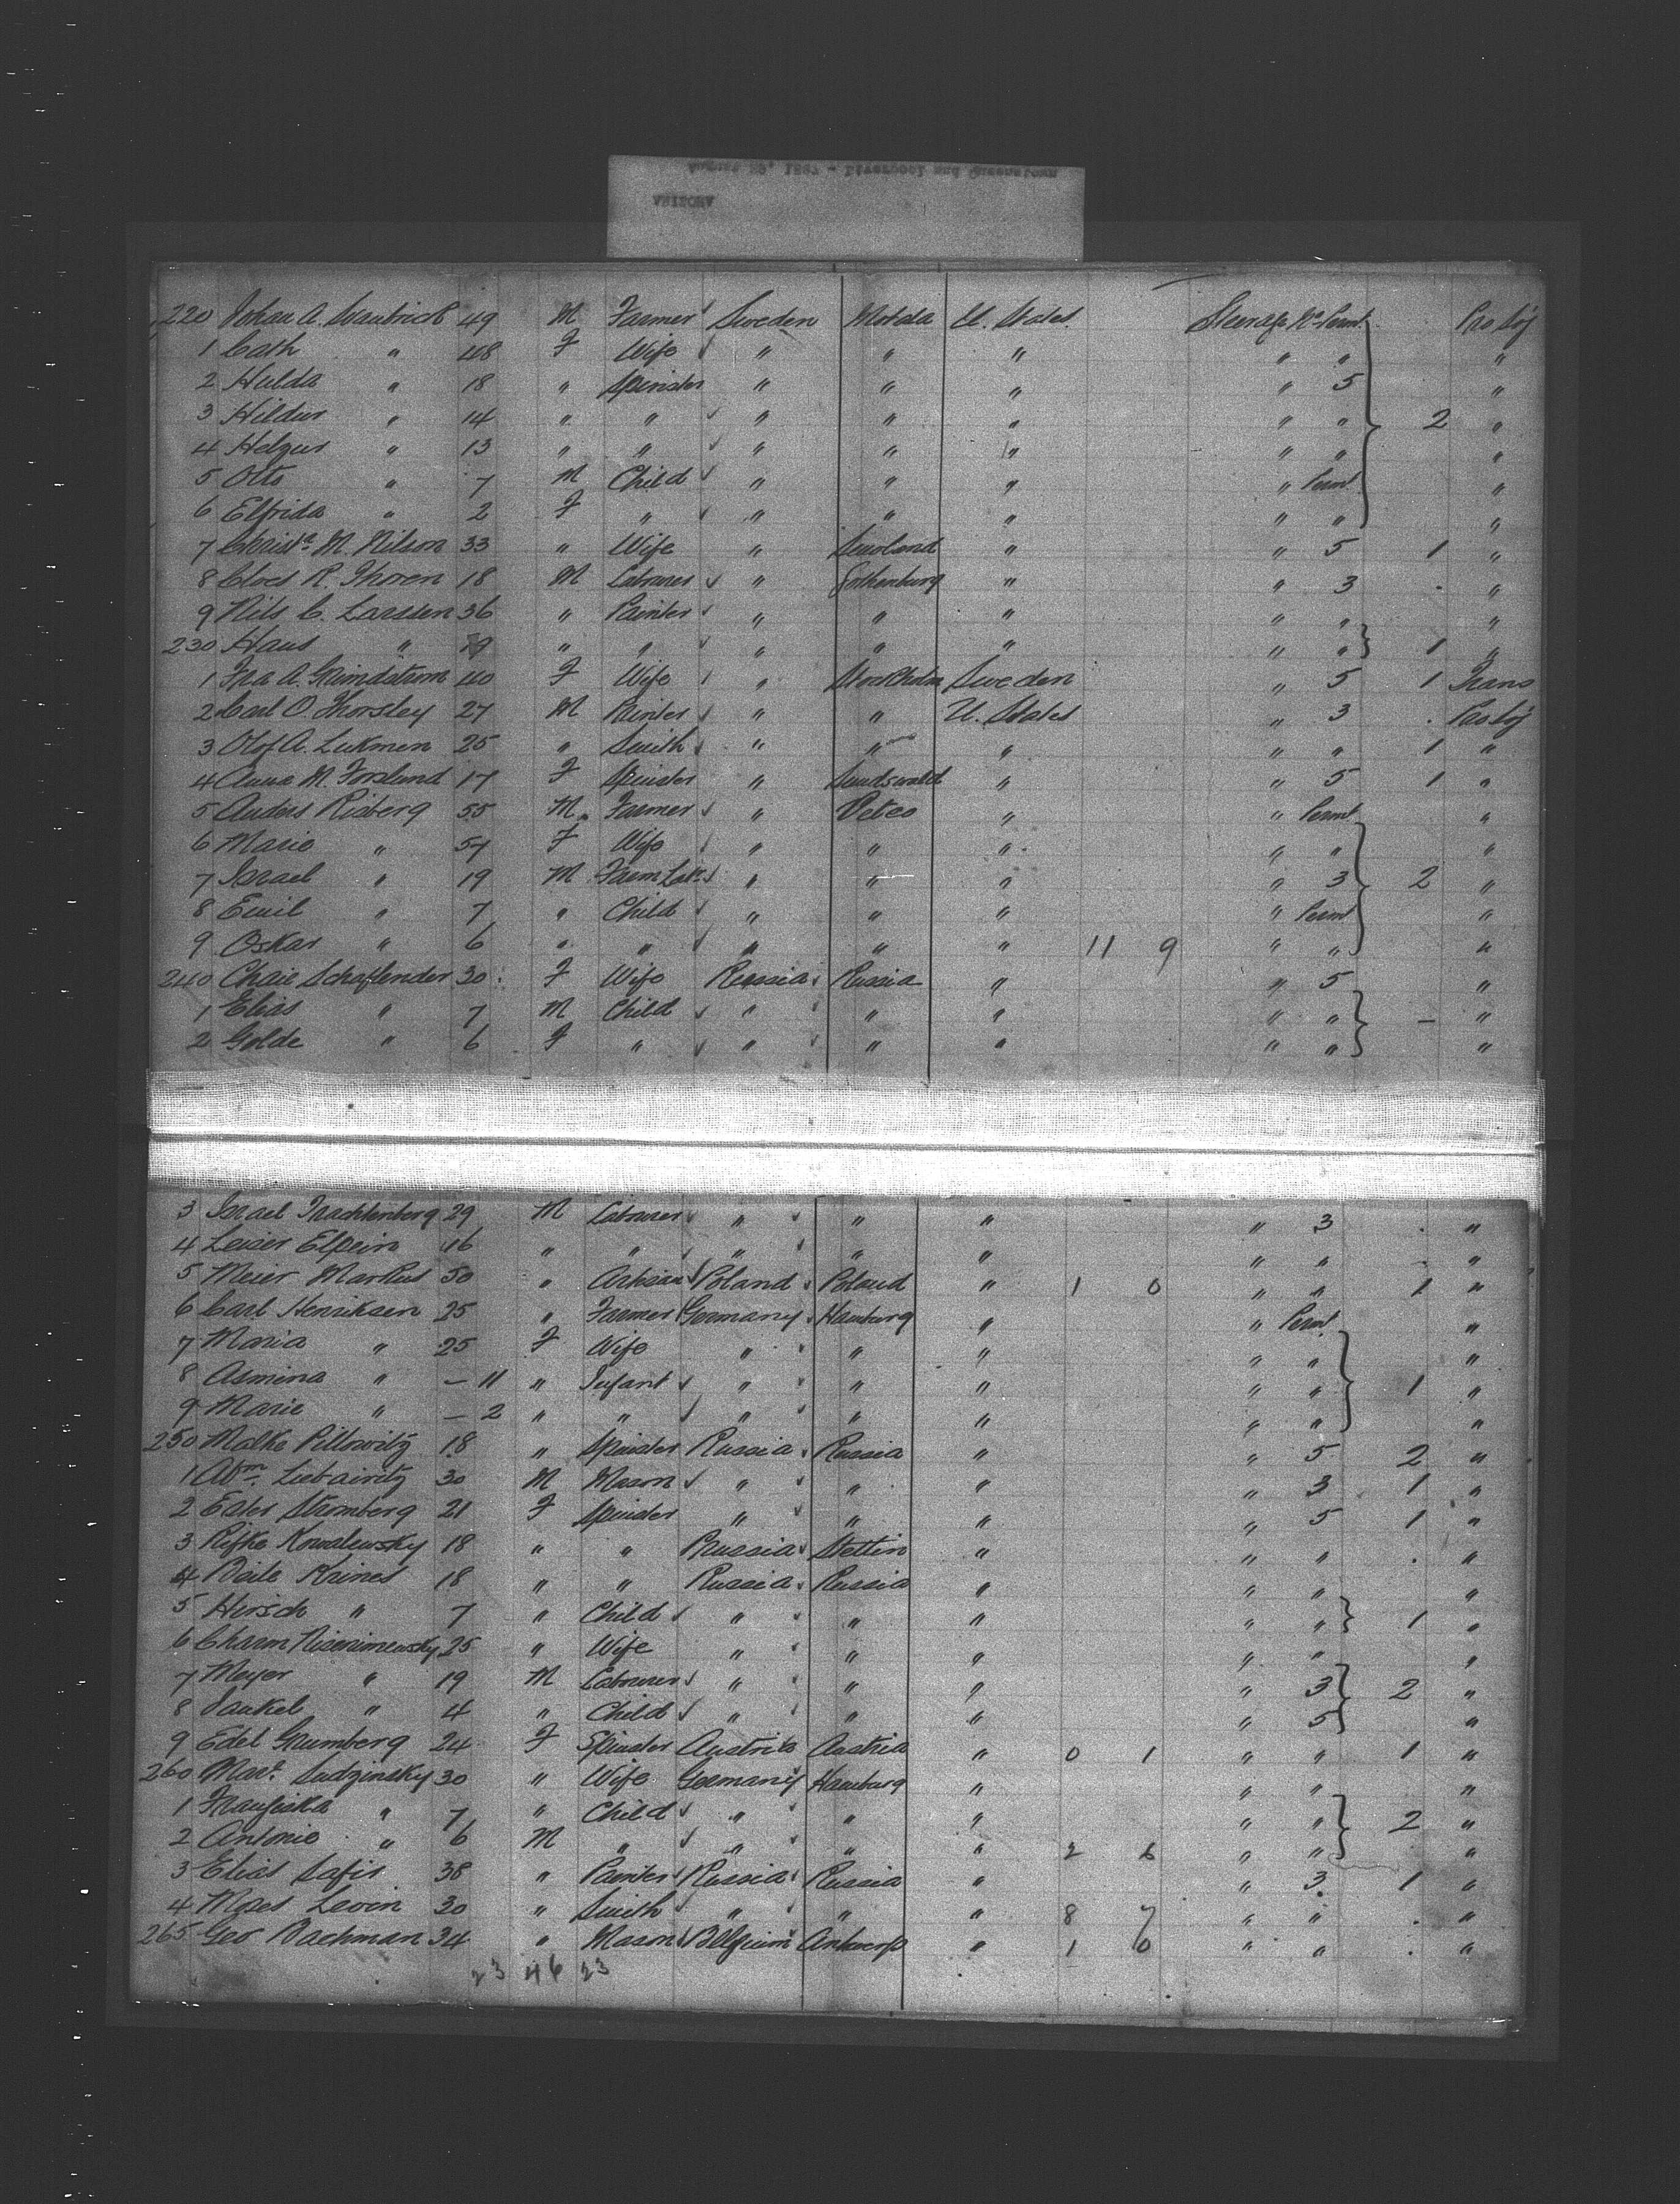 August 29, 1887 - Liverpool and Queenstown
ARIZONA
220 Johan A. 49 M Farmer Sweden Motala U. States Steerage No. Permt. Pro Soj
1 Cath " 48 F Wife " " " " " "
2 Hulda " 18 " Spinster " " " " 5 "
3 Hildur " 14 " " " " " " " 2 "
4 Helgur " 13 " " " " " " " "
5 Otto " 7 M Child " " " " Permt. "
6 Elfrida " 2 F " " " " " " "
7 Christa. M. Nilson 33 " Wife " " " 5 1 "
8 Cloes R. Thoren 18 M Labourer " Gothenburg " " 3 . "
9 Nils C. Larssen 36 " Painter " " " " " "
230 Hans " 19 " " " " " " " 1 "
1 40 F Wife " Stockholm Sweden " 5 1 Trans
2 Carl O. Thorsley 27 M Painter " " U. States " 3 . Pro Soj
3 Olof A. Lukmen 25 " Smith " " " " " 1 "
4 Anna M. Forslund 17 F Spinster " Sundswald " " 5 1 "
5 Anders Risberg 55 M Farmer " " " Permt. "
6 Marie " 54 F Wife " " " " " "
7 Israel " 19 M Farm Labr. " " " " 3 2 "
8 Emil " 7 " Child " " " " Permt. "
9 Oskar " 6 " " " " " 11 9 " " "
240 Chaie Schaflender 30 F Wife Russia Russia " " 5 "
1 Elias " 7 M Child " " " " " – "
2 Golde " 6 F " " " " " " "
3 Israel Trachtenberg 29 M Labourer " " " " 3 . "
4 Leiser Elpein 16 " " " " " " " . "
5 Meier Markus 50 " Artisan Poland Poland " 1 0 " " 1 "
6 Carl Henriksen 25 " Farmer Germany Hamburg " " Permt. "
7 Maria " 25 F Wife " " " " " "
8 Asmina " – 11 " Infant " " " " " 1 "
9 Marie " – 2 " " " " " " " "
250 Malke Pillowitz 18 " Spinster Russia Russia " " 5 2 "
1 Abm. 30 M Mason " " " " 3 1 "
2 Ester Stromberg 21 F Spinster " " " " 5 1 "
3 Rifke Kowalewsky 18 " " Prussia Stettin " " " . "
4 Beile Kaines 18 " " Russia Russia " " " "
5 Hirsch " 7 " Child " " " " " 1 "
6 25 " Wife " " " " " "
7 Meyer " 19 M Labourer " " " " 3 2 "
8 Jankel " 4 " Child " " " " 5 "
9 Edel Grumberg 24 F Spinster Austria Austria " 0 1 " " 1 "
260 Mart. Sudzinsky 30 " Wife Germany Hamburg " " " "
1 Franziska " 7 " Child " " " " " 2 "
2 Antonie " 6 M " " " " 2 6 " " "
3 Elias Safir 38 " Painter Russia Russia " " 3 1 "
4 Moses Levin 30 " Smith " " " 8 7 " " . "
265 Geo Bachman 34 " Mason Belgium Antwerp " 1 0 " " . "
23 46 23